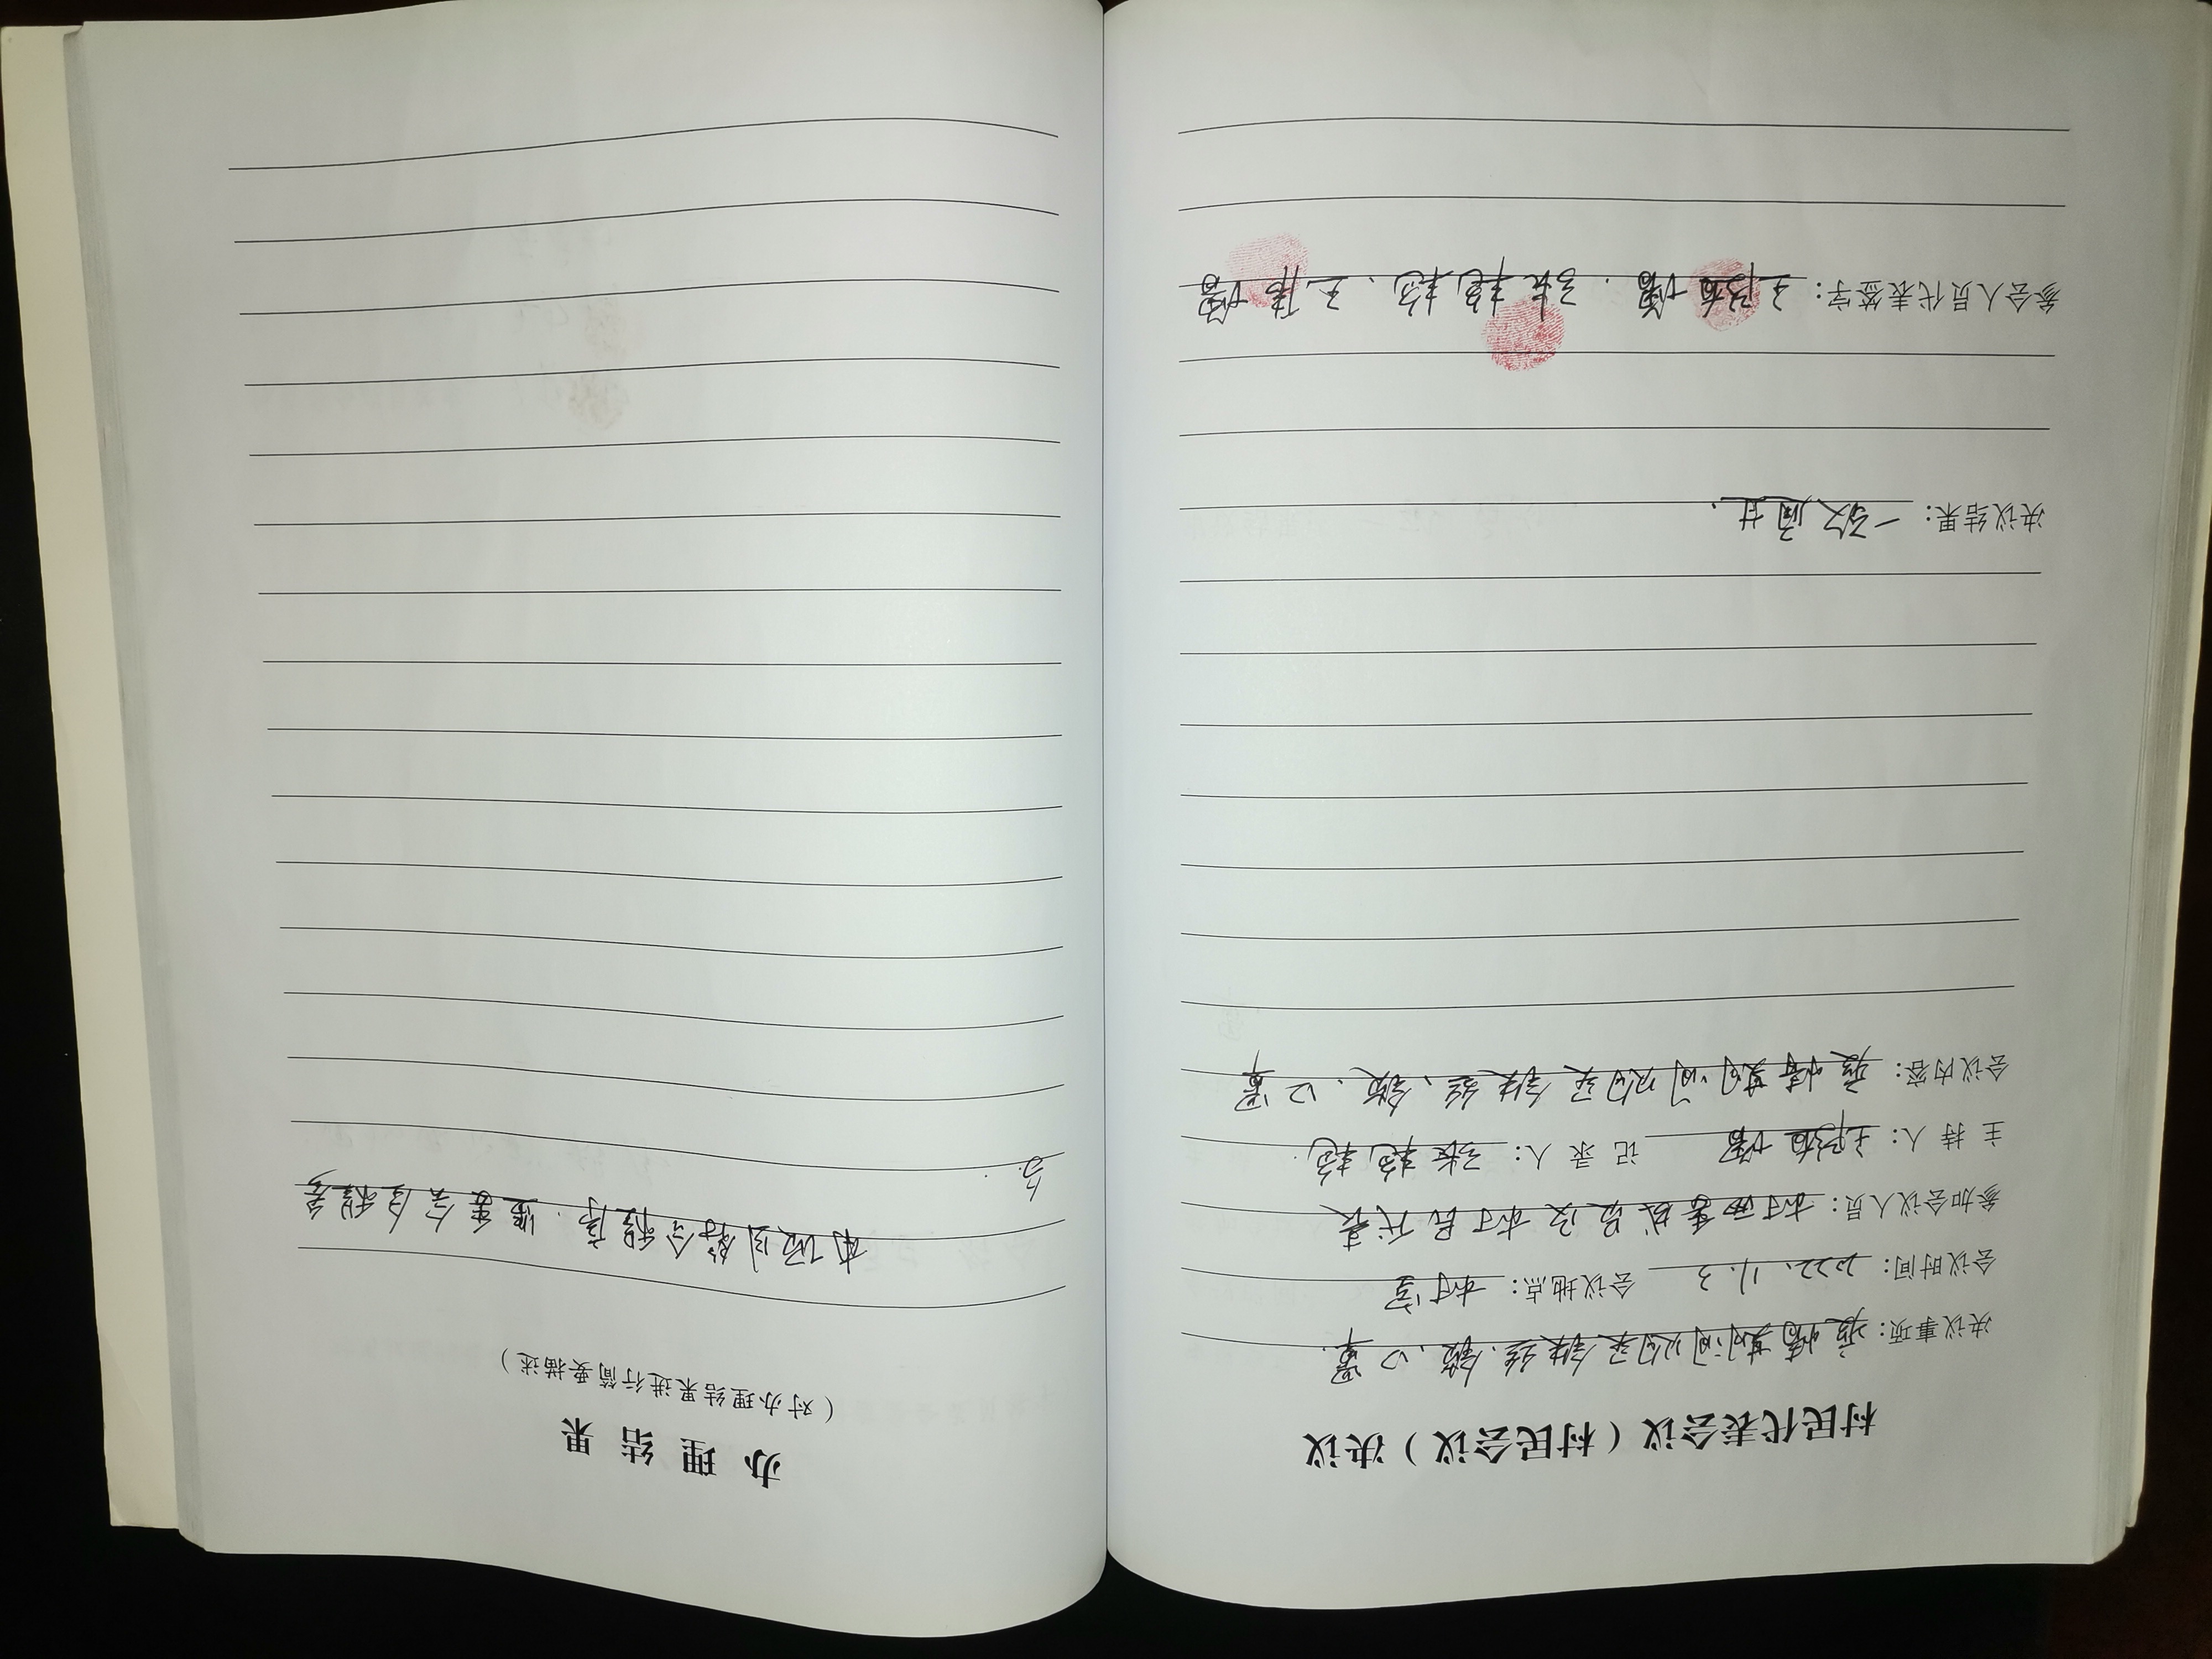 村民代表会议（村民会议）决议
决议事项：疫情期间购买铁丝、锁、口罩.
会议时间：2022、11.3 会议地点：村室
参加会议人员：村两委成员及村民代表
主持人：王随增 记录人：张艳艳.
会议内容：疫情期间购买铁丝、锁、口罩
决议结果：一致通过、
参会人员代表签字：王随增.张艳艳、王伟增
办理结果
（对办理结果进行简要描述）
本项目符合程序.监委会全程参
与.